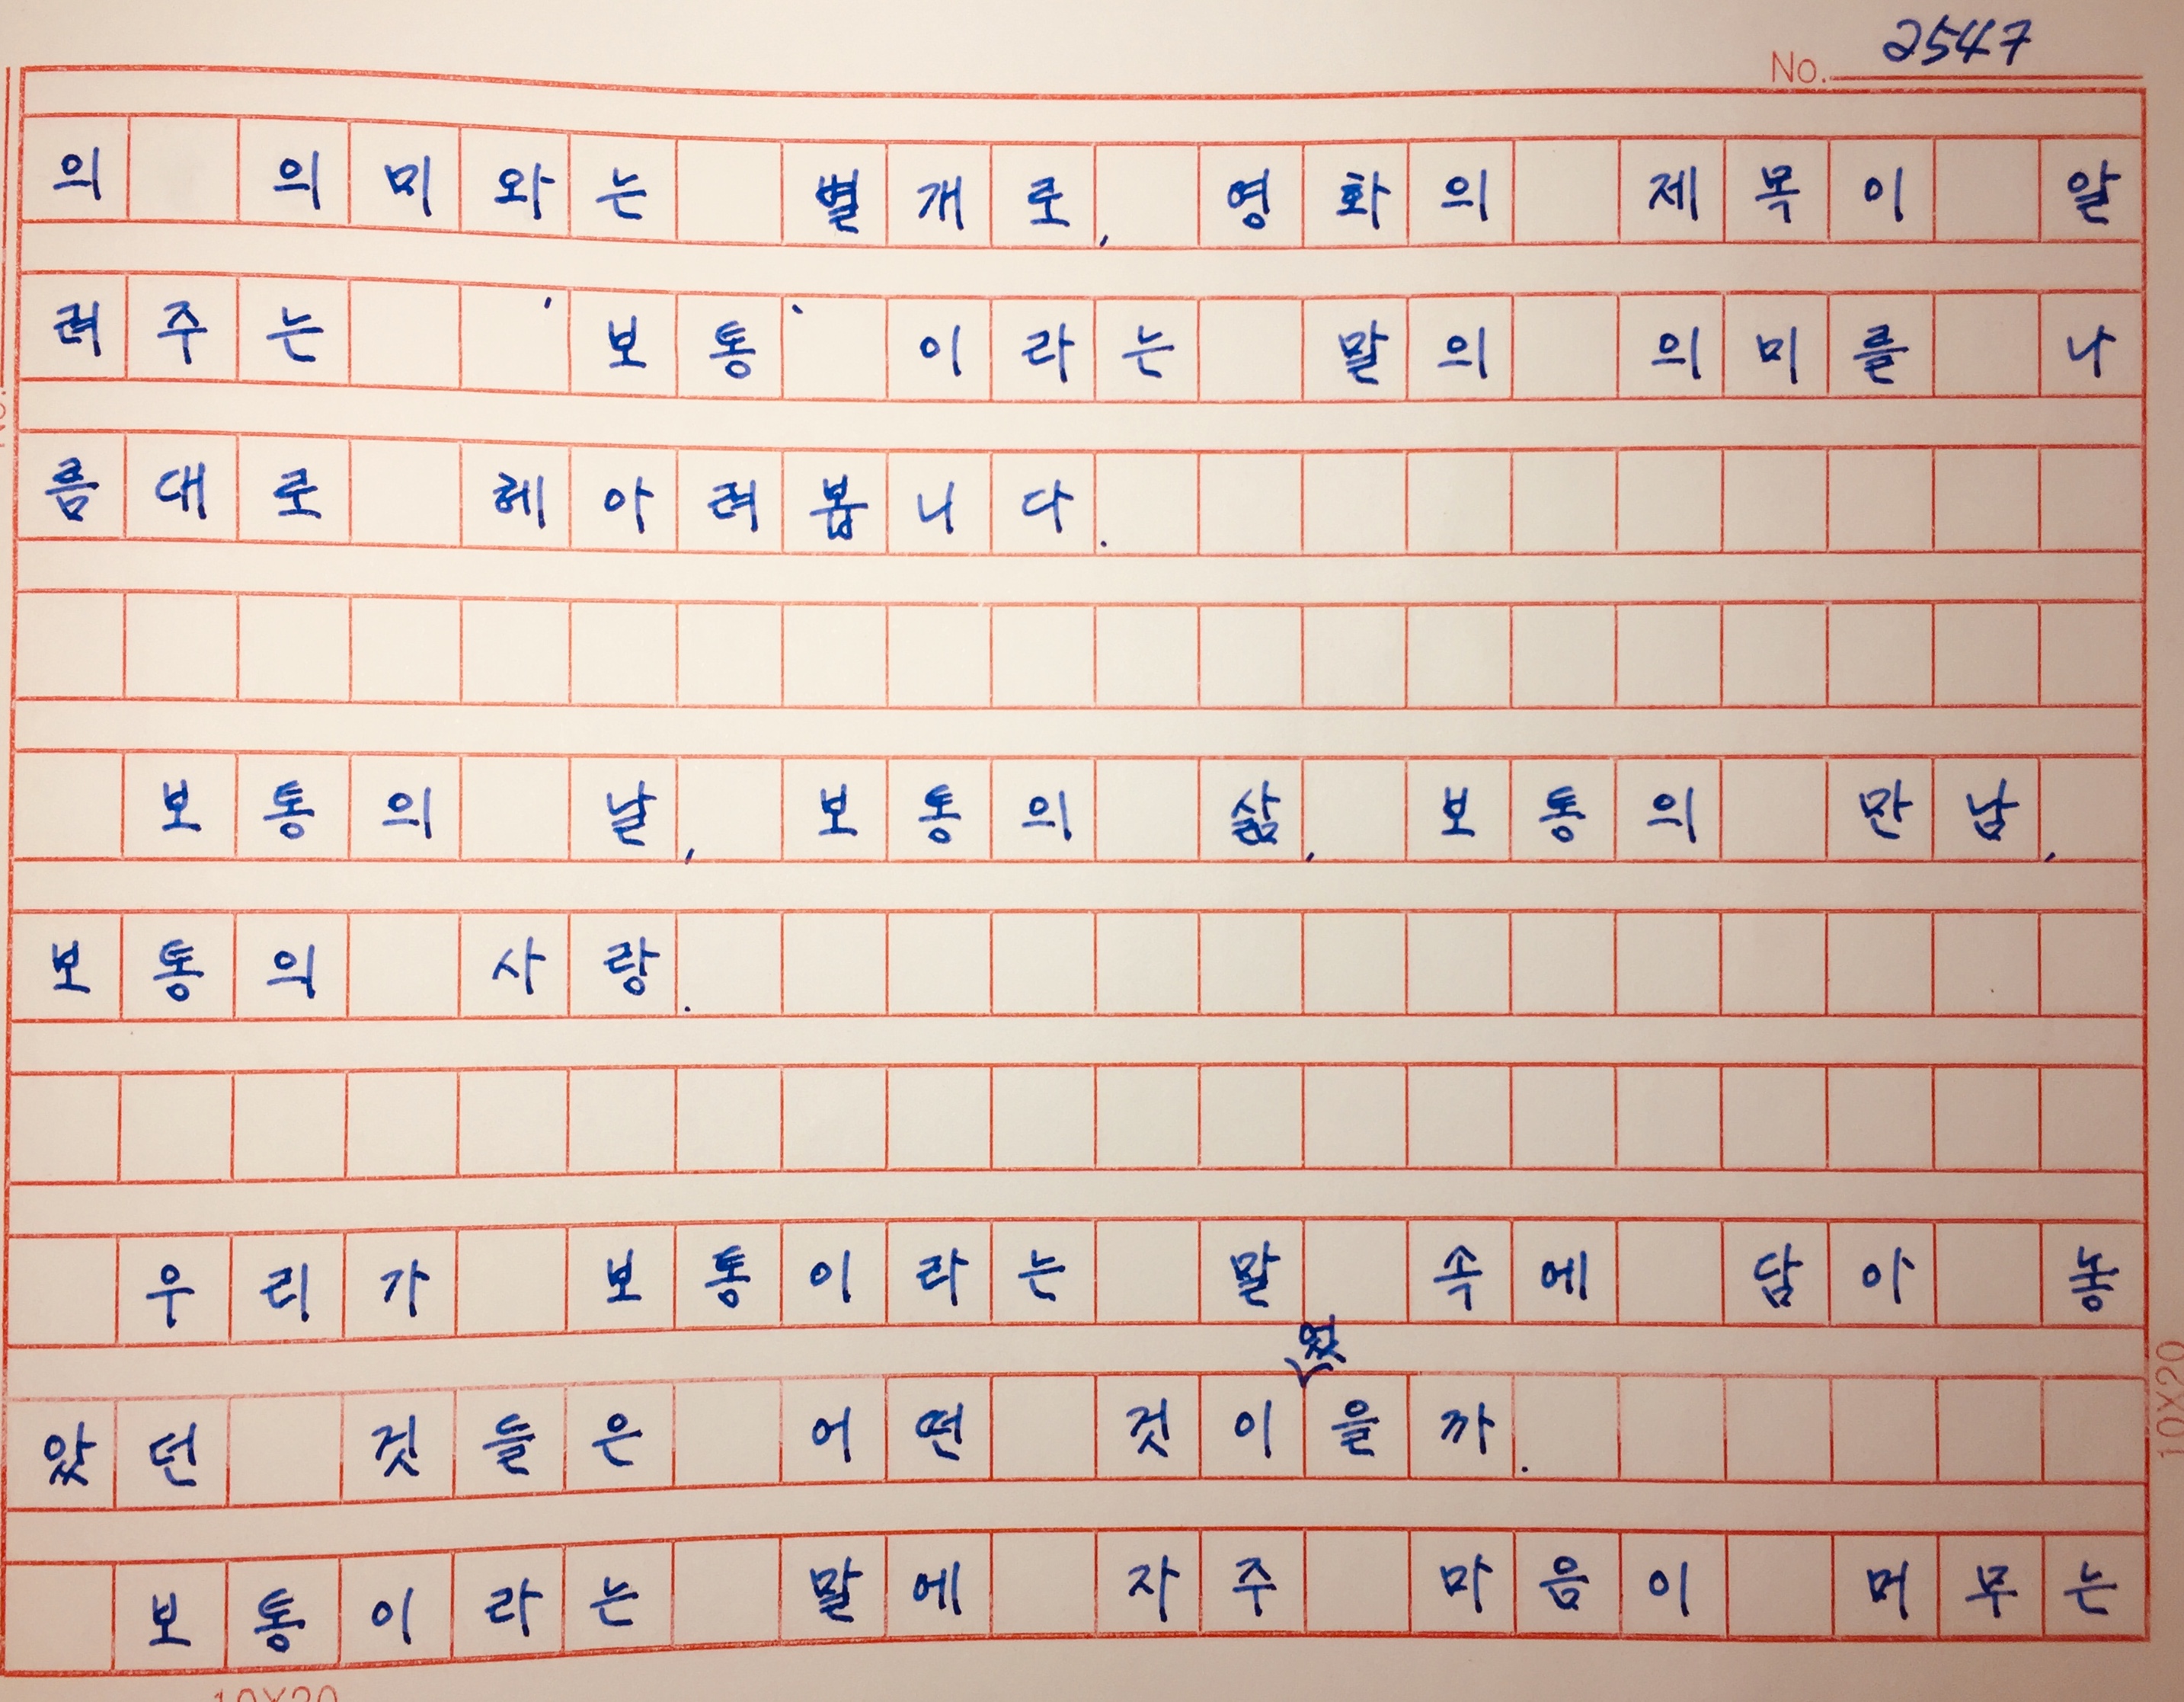 No. 2547
의 의미와는 별개로, 영화의 제목이 알
려주는 '보통'이라는 말의 의미를 나
름대로 헤아려봅니다.
보통의 날, 보통의 삶, 보통의 만남,
보통의 사랑.
우리가 보통이라는 말 속에 담아 놓
았던 것들은 어떤 것이었을까.
보통이라는 말에 자주 마음이 머무는
10X20
10X20